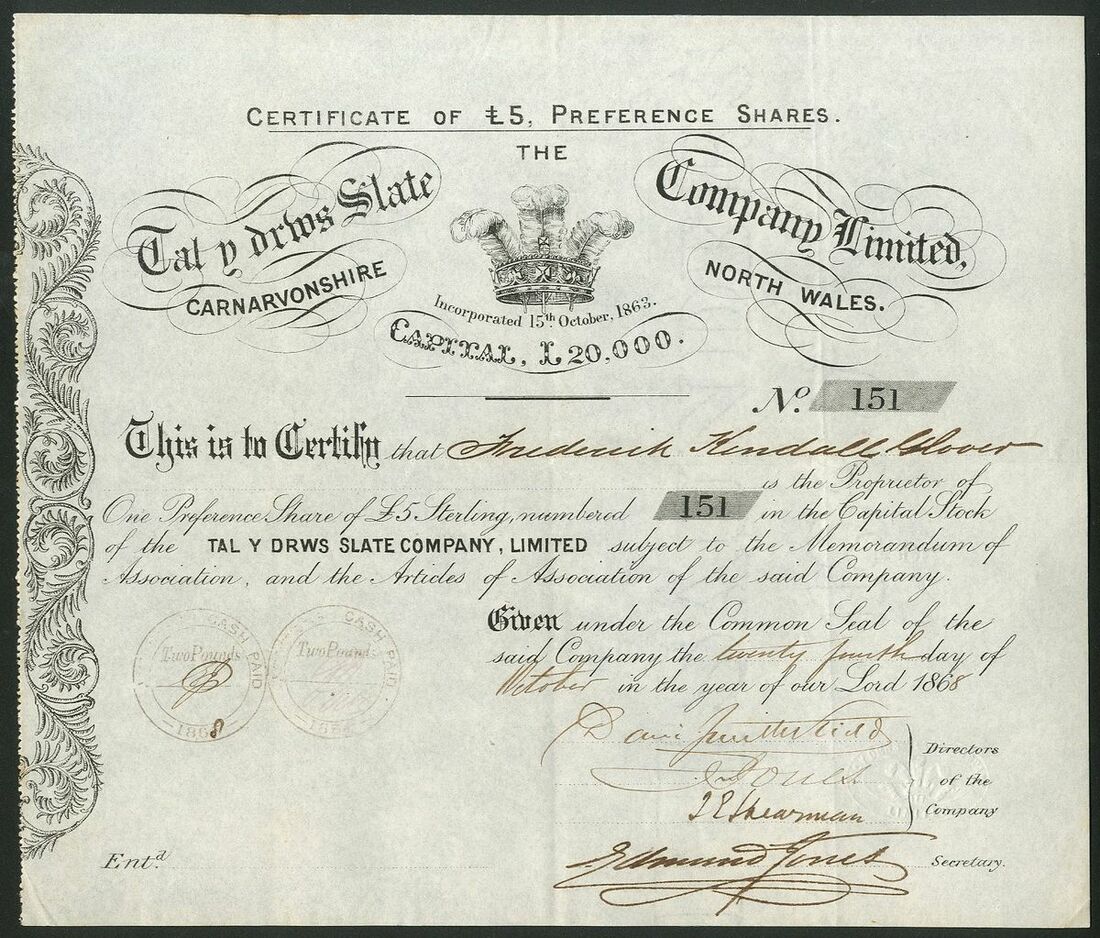 CERTIFICATE OF £5, PREFERENCE SHARES.
THE
Tal y drws Slate Company Limited,
CARNARVONSHIRE NORTH WALES.
Incorporated 15th October, 1863.
CAPITAL, £20,000.
No. 151
This is to Certify that Frederick Kendall Glover
is the Proprietor of
One Preference Share of £5 Sterling, numbered 151 in the Capital Stock
of the TAL Y DRWS SLATE COMPANY, LIMITED subject to the Memorandum of
Association, and the Articles of Association of the said Company.
Given under the Common Seal of the
said Company the twenty fourth day of
October in the year of our Lord 1868
CASH PAID
Two Pounds
1868
CASH PAID
Two Pound
Directors
of the
Company
Jones
Shearman
Edmund Jones Secretary.
Entd.